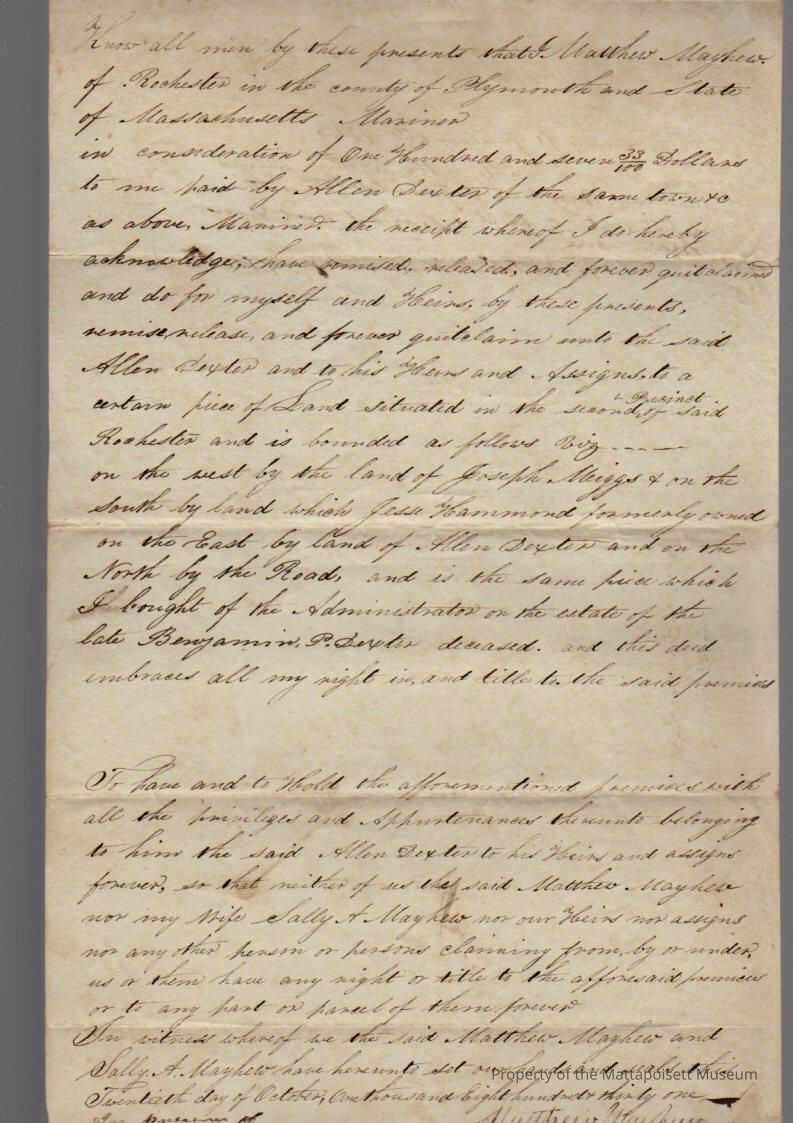 Know all men by these presents that I Matthew Mayhew.
of Rochester in the county of Plymouth and State
of Massachusetts Mariner
in consideration of One Hundred and seven 33/100 Dollars
to me paid by Allen Dexter of the same town &c
as above, Mariner, the receipt whereof I do hereby
acknowledge; have remised, released, and forever quitclaimed
and do for myself and Heirs, by these presents,
remise, release, and forever quitclaim unto the said
Allen Dexter and to his Heirs and Assigns, to a
certain piece of Land situated in the second Precinct of said
Rochester and is bounded as follows Viz ----
on the west by the land of Joseph Meiggs & on the
South by land which Jesse Hammond formerly owned
on the East by land of Allen Dexter and on the
North by the Road, and is the same piece which
I bought of the Administrator on the estate of the
late Benjamin, P. Dexter deceased. and this deed
embraces all my right in, and title to the said premices
To have and to Hold the afforementioned premices with
all the priviliges and Appurtenances thereunto belonging
to him the said Allen Dexter to his Heirs and assigns
forever, so that neither of us the said Matthew Mayhew
nor my Wife Sally A. Mayhew nor our Heirs nor assigns
nor any other person or persons claiming from, by or under,
us or them have any right or title to the afforesaid premices
or to any part or parcel of them forever
In witness whereof we the said Matthew Mayhew and
Sally. A. Mayhew have hereunto set our hands and seals this
Twentieth day of October, One thousand Eight hundred & thirty one
In presence of Matthew Mayhew
Property of the Mattapoisett Museum